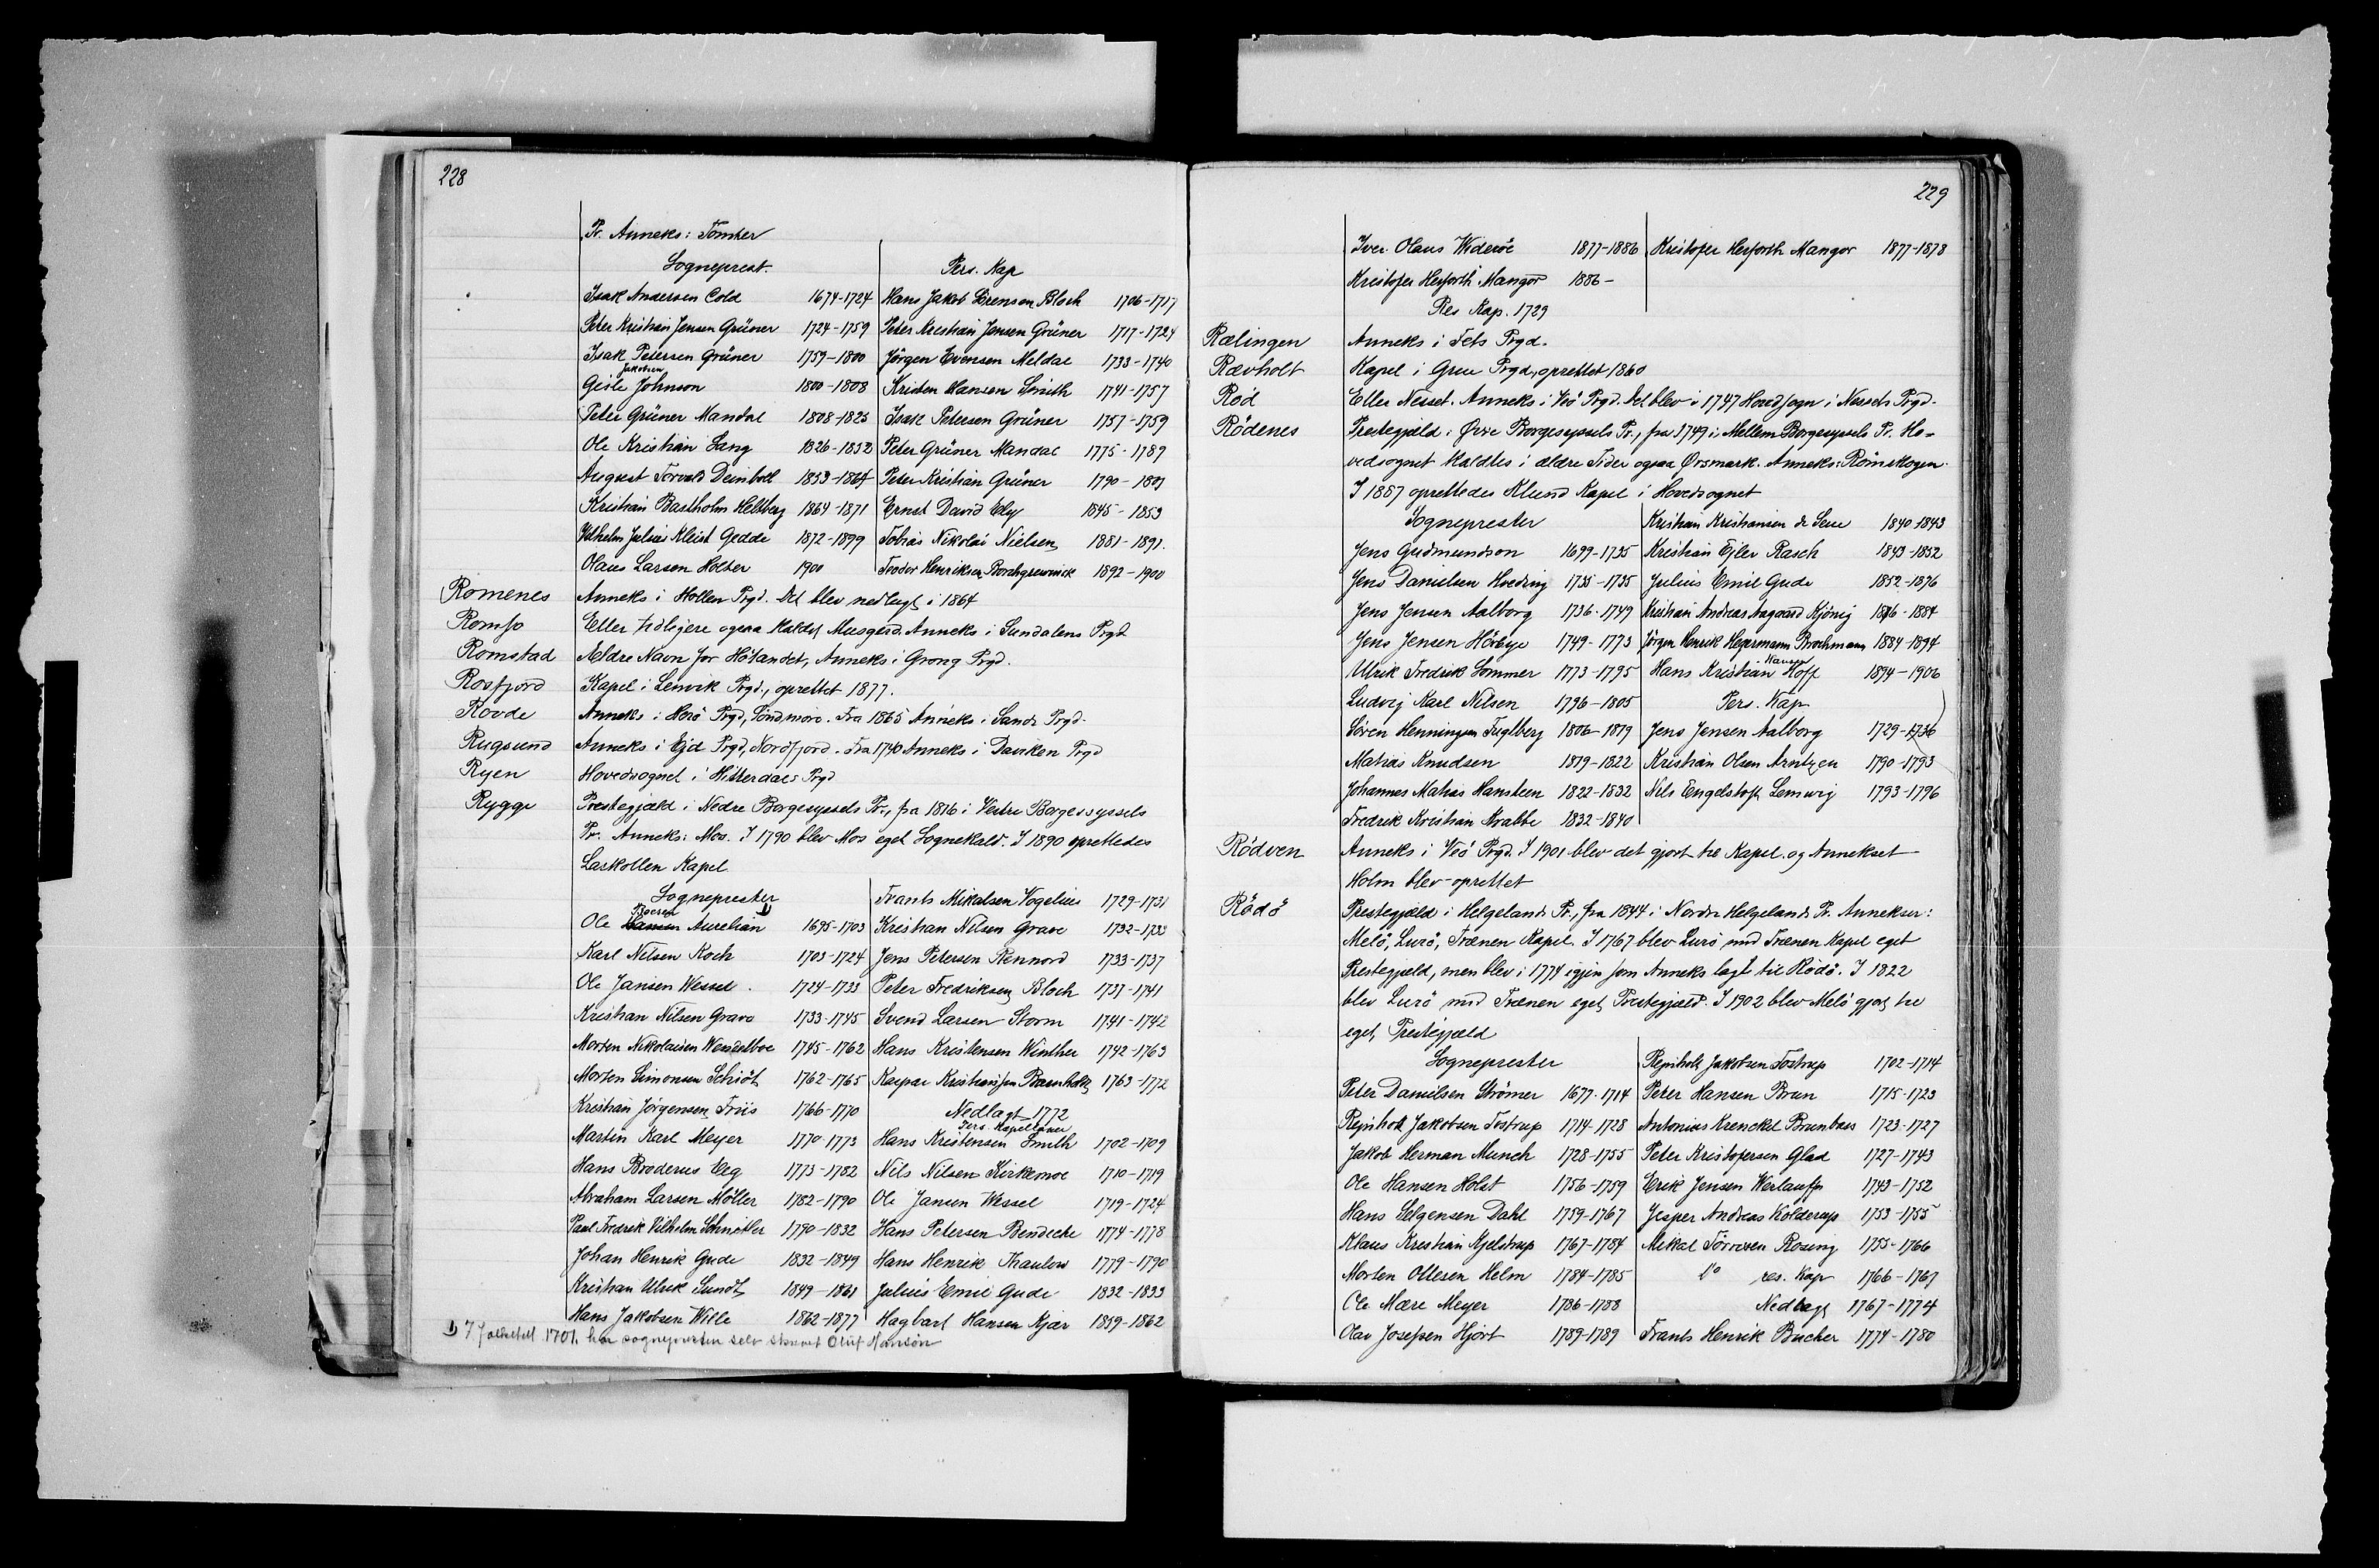 228
Pr. Anneks: Tomter
Sogneprest. Pers. Kap
Isak Andersen Cold 1674-1724 Hans Jakob Sörensen Bloch 1706-1717
Peter Kristian Jensen Grüner 1724-1759 Peter Kristian Jensen Grüner 1717-1724
Isak Petersen Grüner 1759-1800 Jörgen Evensen Meldal 1733-1740
Jakobsen
Gisle Johnson 1800-1808 Kristen Hansen Smith 1741-1757
Peter Grüner Mandal 1808-1825 Isak Petersen Grüner 1757-1759
Ole Kristian Lang 1826-1852 Peter Grüner Mandal 1775-1789
August Torvald Deinboll 1853-1864 Peter Kristian Grüner 1790-1803
Kristian Bastholm Heltberg 1864-1871 Ernst David Ely 1845-1853
Vilhelm Julius Kleist Gedde 1872-1899 Tobias Nikolai Nielsen 1881-1891.
Olaus Larsen Holter 1900 Frodor Henriksen Borchgrevinck 1892-1900
Romenes Anneks i Hollen Prgd. Det blev nedlagt i 1864
Romfo Eller tidligere ogsaa kaldet Musgerd. Anneks i Sundalens Prgd
Romstad Ældre Navn for Höilandet, Anneks i Grong Prgd.
Rosfjord Kapel i Lenvik Prgd., oprettet 1877.
Rovde Anneks i Herö Prgd, Söndmöre. Fra 1865 Anneks i Sands Prgd.
Rugsund Anneks i Ejd Prgd, Nordfjord. Fra 1740 Anneks i Daviken Prgd
Ryen Hovedsognet i Hitterdals Prgd
Rygge Prestegjæld i Nedre Borgesyssels Pr., fra 1816 i Vestre Borgesyssels
Pr. Anneks: Mos. I 1790 blev Mos eget Sognekald. I 1890 oprettedes
Larkollen Kapel
Sogneprester Frants Mikalsen Vogelius 1729-1731
Ole Hansen Aurelian 1) 1695-1703 Kristian Nilsen Grave 1732-1733
Karl Nilsen Koch 1703-1724 Jens Petersen Rennord 1733-1737
Ole Jansen Wessel 1724-1733 Peter Fredriksen Bloch 1737-1741
Kristian Nilsen Grave 1733-1745 Svend Larsen Storm 1741-1742
Morten Nikolaisen Wendelboe 1745-1762 Hans Kristensen Winther 1742-1763
Morten Simonsen Schiöt 1762-1765 Kaspar Kristiansen Barnholt 1763-1772
Kristian Jörgensen Friis 1766-1770 Nedlagt 1772
Pers. Kapellaner
Martin Karl Meyer 1770-1773 Hans Kristensen Smith 1702-1709
Hans Broderus Eeg 1773-1782 Nils Nilsen Kirkemoe 1710-1719
Abraham Larsen Möller 1782-1790 Ole Jansen Wessel 1719-1724
Paul Fredrik Vilhelm Schnitler 1790-1832 Hans Petersen Bendeche 1774-1778
Johan Henrik Gude 1832-1849 Hans Henrik Thaulow 1779-1790
Kristian Ulrik Sundt 1849-1861 Julius Emil Gude 1832-1833
Hans Jakobsen Wille 1862-1877 Hagbart Hansen Kjær 1859-1862
1) I folketell 1701 har sognepresten selv skrevet Oluf Hansön
229
Iver Olaus Wideröe 1877-1886 Kristofer Herforth Mangor 1877-1878
Kristofer Herforth Mangor 1886-
Res Kap. 1729
Rælingen Anneks i Fets Prgd.
Rævholt Kapel i Grue Prgd, oprettet 1860
Röd Eller Nesset. Anneks i Veö Prgd. Det blev i 1747 Hovedsogn i Nessets Prgd.
Rödenes Prestegjæld i Øvre Borgesyssels Pr., fra 1749 i Mellem Borgesyssels Pr. Ho-
vedsognet kaldtes i ældre Tider ogsaa Ørsmark. Anneks: Römskogen
I 1887 oprettedes Klund Kapel i Hovedsognet
Sogneprester Kristian Kristiansen de Seue 1840-1843
Jens Gudmundson 1699-1735 Kristian Ejler Rasch 1843-1852
Jens Danielsen Hveding 1735-1735 Julius Emil Gude 1852-1876
Jens Jensen Aalborg 1736-1749 Kristian Andreas Aagaard Kjönig 1876-1884
Jens Jensen Hörbye 1749-1773 Jörgen Henrik Hegermann Brochmann 1884-1894
Ulrik Fredrik Sommer 1773-1795 Hans Kristian Hansen Hoff 1894-1906
Ludvig Karl Nilsen 1796-1805 Pers. Kap
Sören Henningsen Fuglberg 1806-1819 Jens Jensen Aalborg 1729-1736
Matias Knudsen 1819-1822 Kristian Olsen Arntzen 1790-1793
Johannes Matias Hansteen 1822-1832 Nils Engelstoft Lemvig 1793-1796
Fredrik Kristian Krabbe 1832-1840
Rödven Anneks i Veö Prgd. I 1901 blev det gjort til Kapel, og Annekset
Holm blev oprettet
Rödö Prestegjæld i Helgelands Pr., fra 1844 i Nordre Helgelands Pr. Annekser:
Melö, Lurö, Trænen Kapel. I 1767 blev Lurö med Trænen Kapel eget
Prestegjæld, men blev i 1774 igjen som Anneks lagt til Rödö. I 1822
blev Lurö med Trænen eget Prestegjæld. I 1902 blev Melö gjort til
eget Prestegjæld
Sogneprester Rejnholt Jakobsen Tostrup 1702-1714
Peter Danielsen Strömer 1677-1714 Peter Hansen Brun 1715-1723
Rejnholt Jakobsen Tostrup 1714-1728 Antonius Krenckel Brunboes 1723-1727
Jakob Herman Munch 1728-1755 Peter Kristofersen Glad 1727-1743
Ole Hansen Holst 1756-1759 Erik Jensen Werlauff 1743-1752
Hans Helgensen Dahl 1759-1767 Jesper Andreas Kolderup 1753-1755
Klaus Kristian Kjelstrup 1767-1784 Mikal Törresen Rosing 1755-1766
Morten Ottesen Helm 1784-1785 do res. Kap 1766-1767
Ole Mære Meyer 1786-1788 Nedlagt 1767-1774
Olav Josefsen Hjort 1789-1789 Frants Henrik Bucher 1774-1780